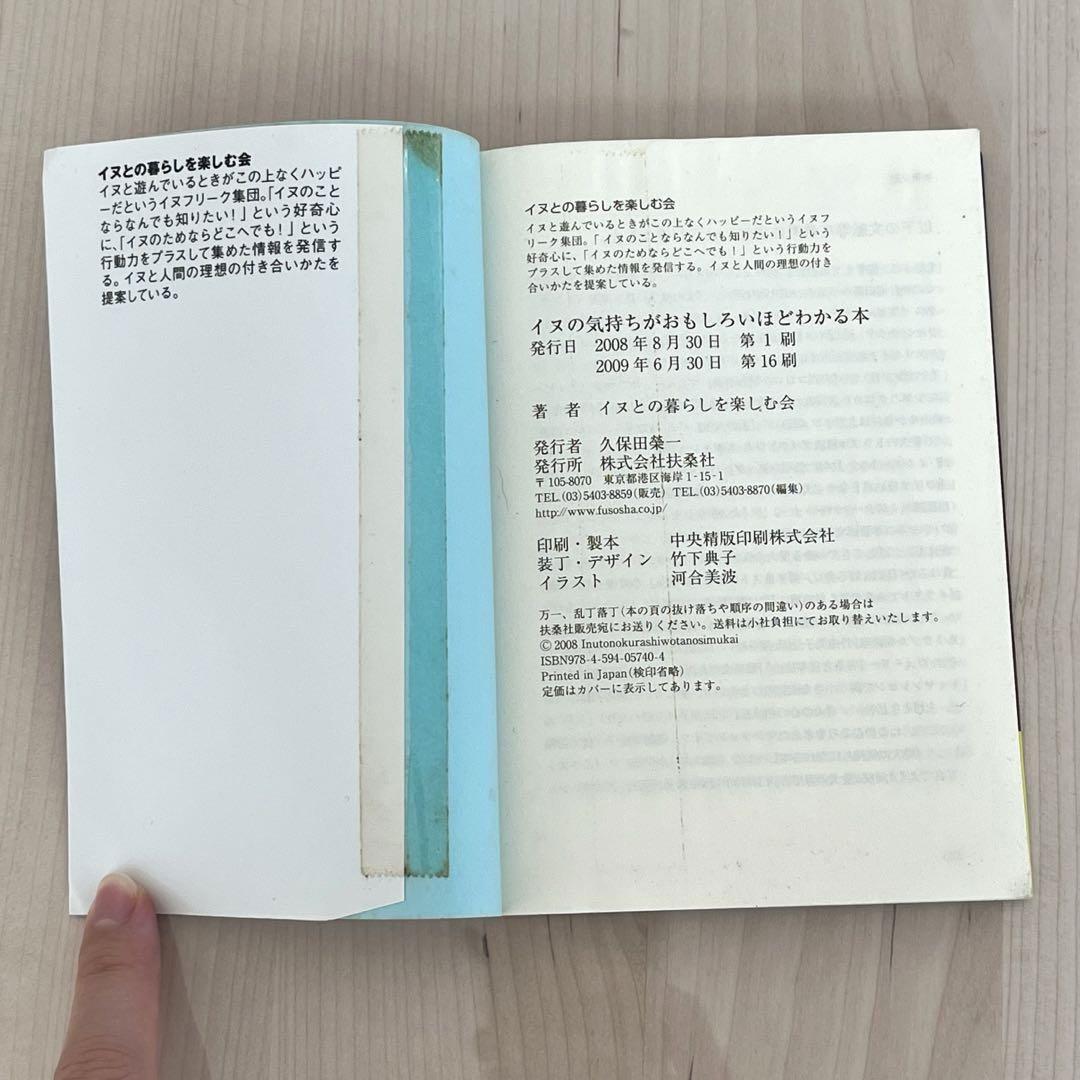 イヌとの暮らしを楽しむ会
イヌと遊んでいるときがこの上なくハッピ
ーだというイヌフリーク集団。「イヌのこと
ならなんでも知りたい！」という好奇心
に、「イヌのためならどこへでも！」という
行動力をプラスして集めた情報を発信す
る。イヌと人間の理想の付き合いかたを
提案している。
イヌとの暮らしを楽しむ会
イヌと遊んでいるときがこの上なくハッピーだというイヌフ
リーク集団。「イヌのことならなんでも知りたい！」という
好奇心に、「イヌのためならどこへでも！」という行動力を
プラスして集めた情報を発信する。イヌと人間の理想の付き
合いかたを提案している。
イヌの気持ちがおもしろいほどわかる本
発行日　2008年8月30日　第1刷
2009年6月30日　第16刷
著　者　イヌとの暮らしを楽しむ会
発行者　久保田榮一
発行所　株式会社扶桑社
〒105-8070　東京都港区海岸1-15-1
TEL.(03)5403-8859(販売)　TEL.(03)5403-8870(編集)
http://www.fusosha.co.jp/
印刷・製本　中央精版印刷株式会社
装丁・デザイン　竹下典子
イラスト　河合美波
万一、乱丁落丁(本の頁の抜け落ちや順序の間違い)のある場合は
扶桑社販売宛にお送りください。送料は小社負担にてお取り替えいたします。
Ⓒ 2008 Inutonokurashiwotanosimukai
ISBN978-4-594-05740-4
Printed in Japan(検印省略)
定価はカバーに表示してあります。